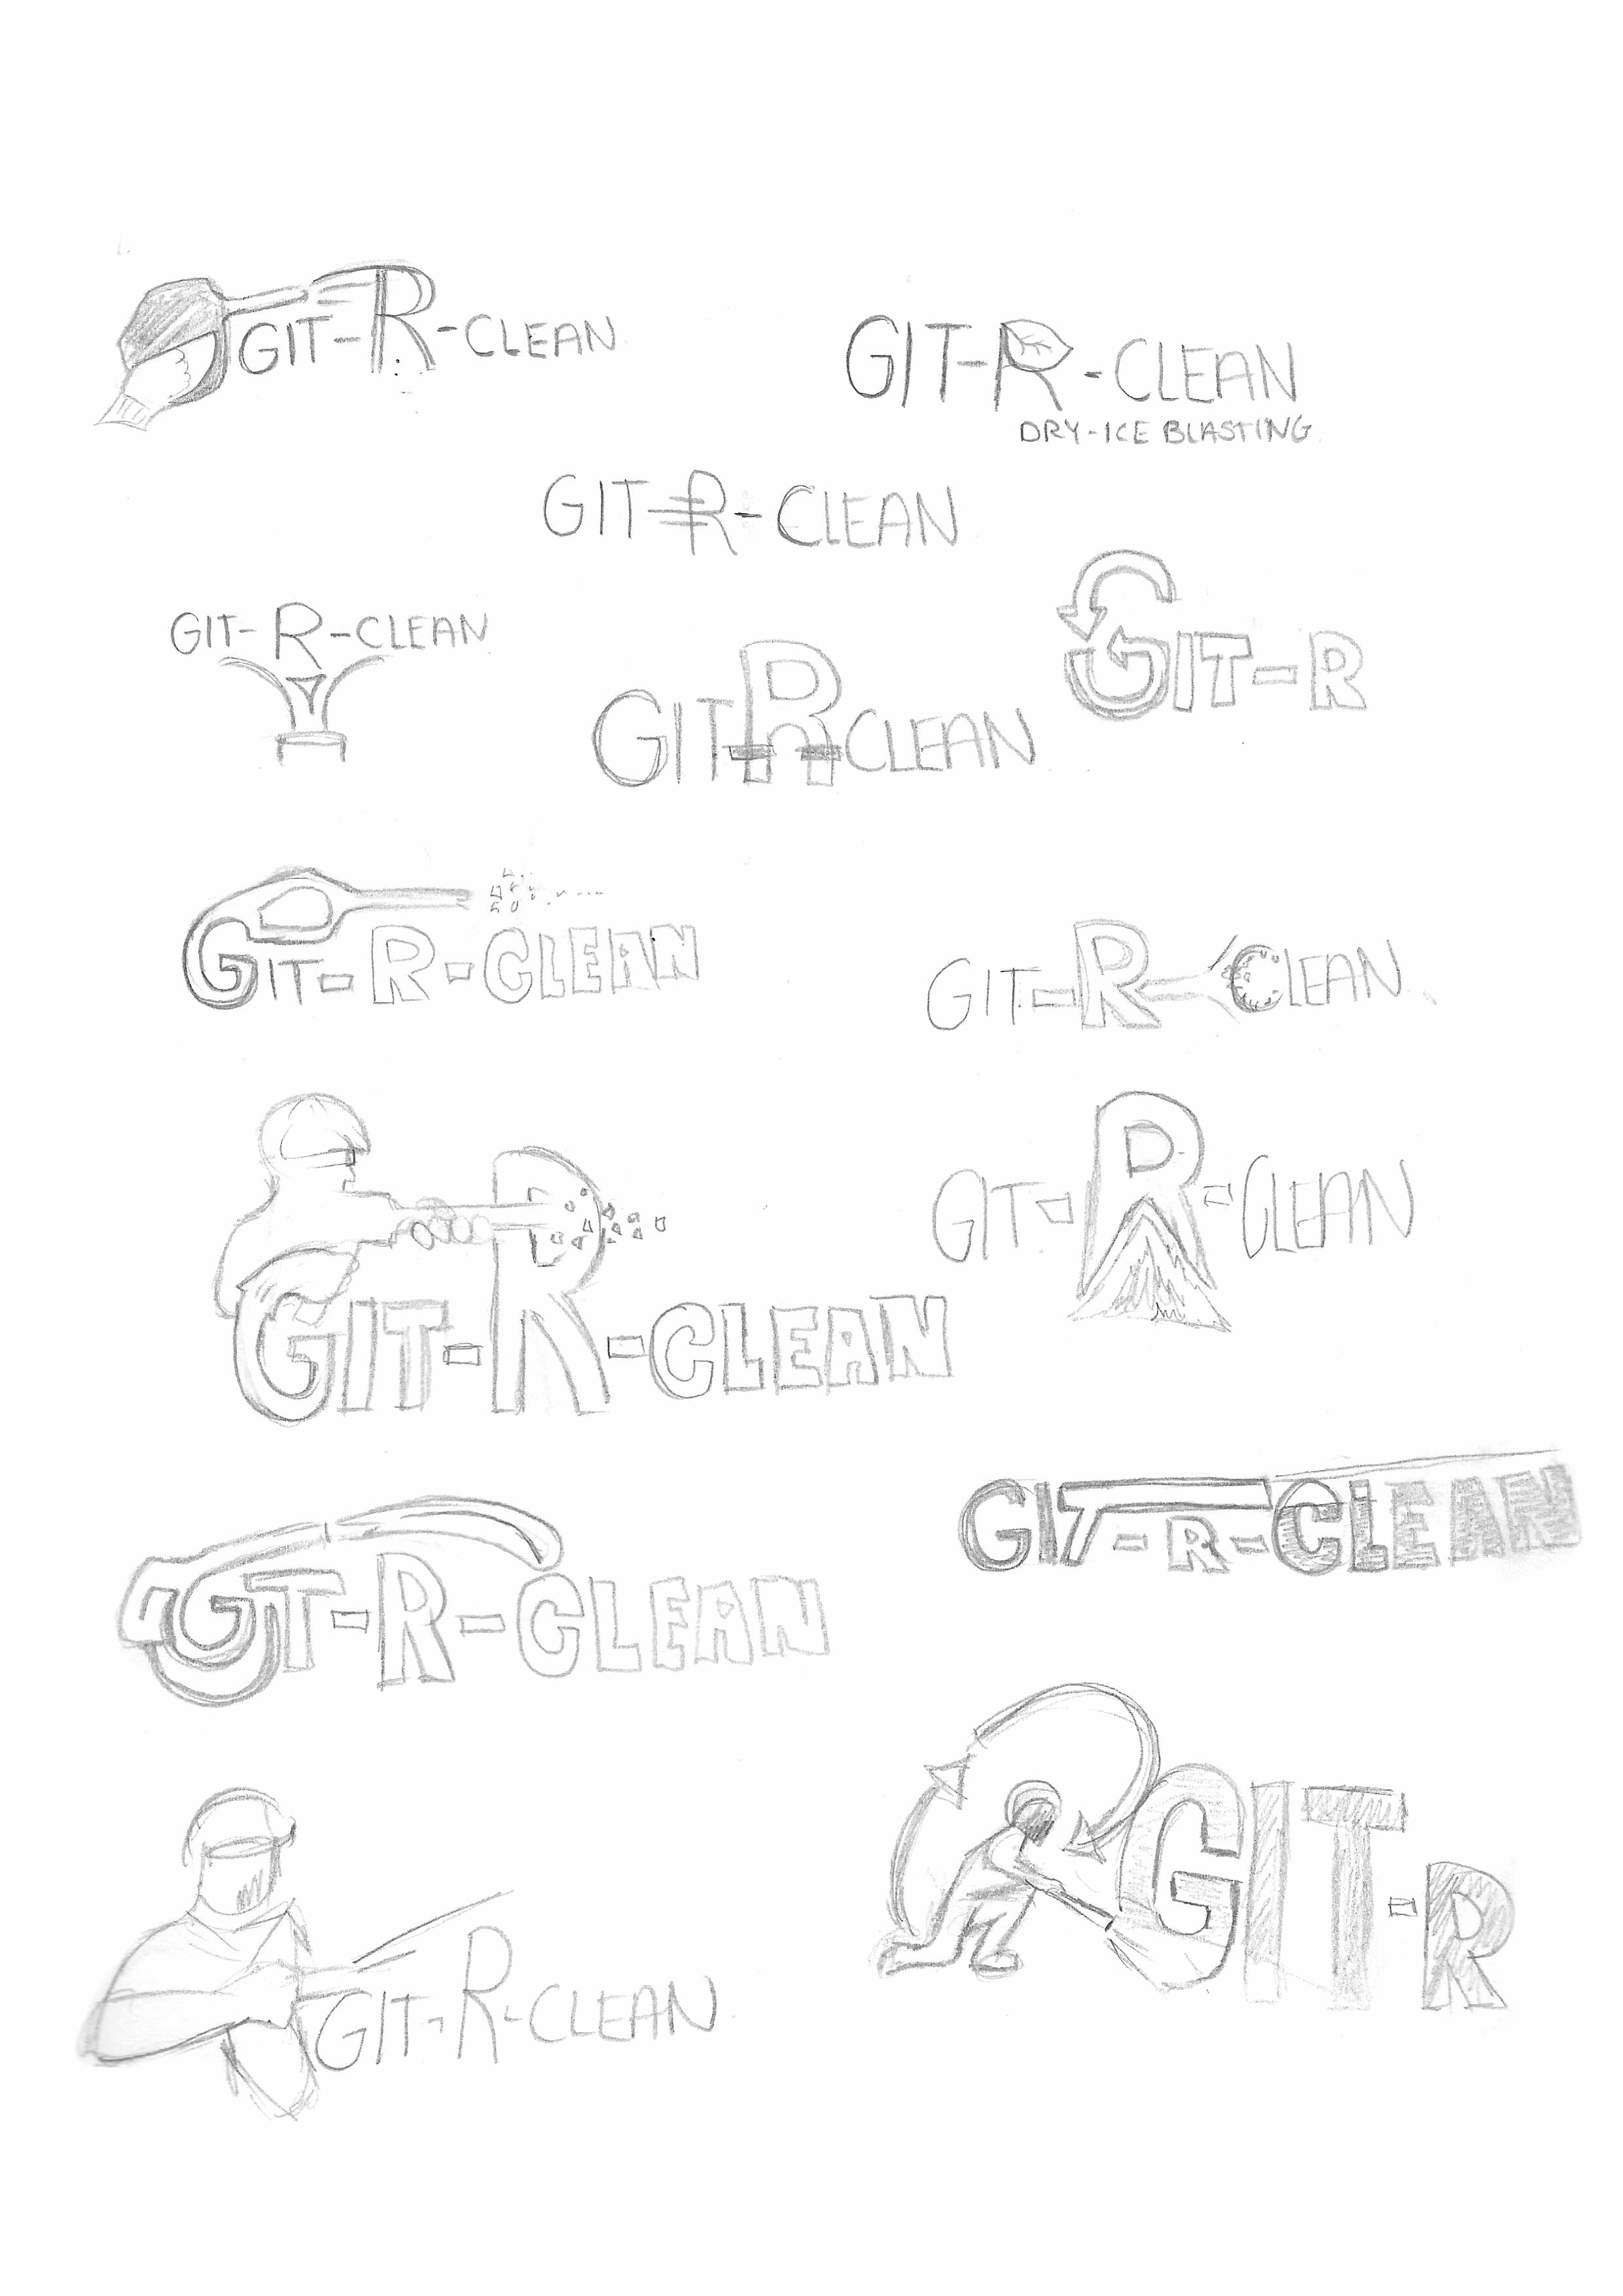 GIT-R-CLEAN
GIT-R-CLEAN
DRY-ICE BLASTING
GIT-R-CLEAN
GIT-R-CLEAN
GIT-R-CLEAN
GIT-R
GIT-R-CLEAN
GIT-R-CLEAN
GIT-R-CLEAN
GIT-R-CLEAN
GIT-R-CLEAN
GIT-R-CLEAN
GIT-R-CLEAN
GIT-R